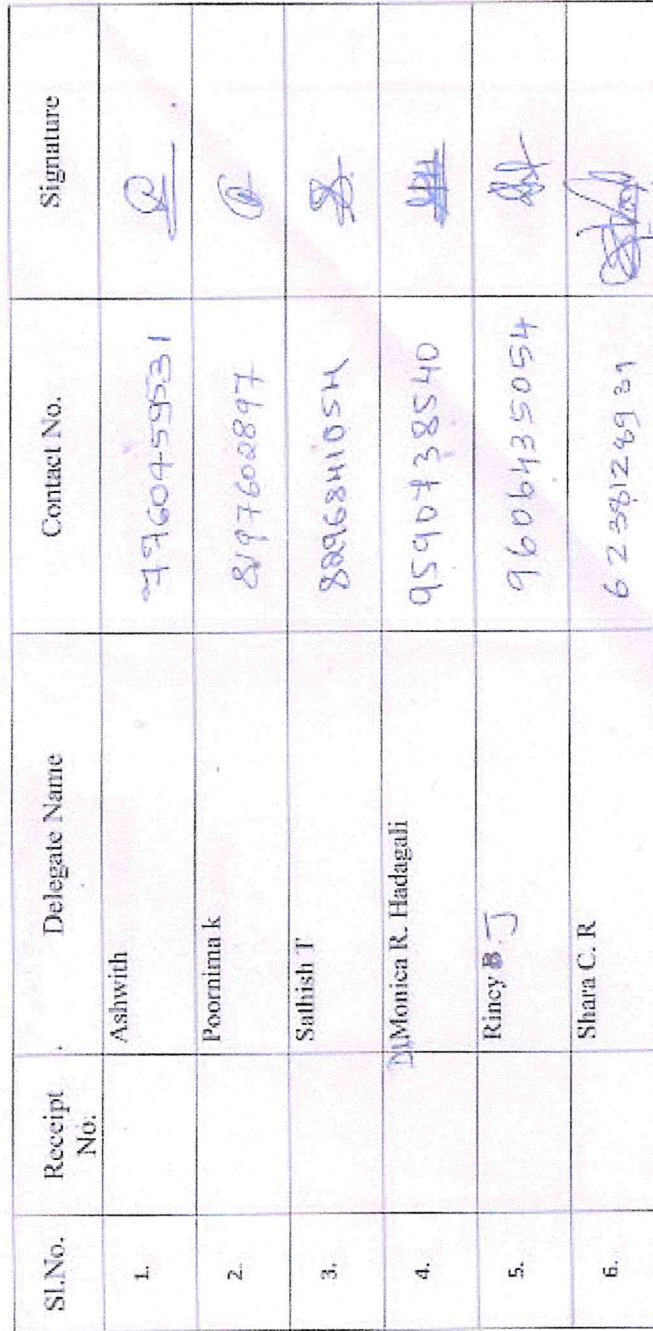 Sl.No. Receipt No. Delegate Name Contact No. Signature
1. Ashwith
2. Poornima k 8197602897
3. Sathish T 8296841054
4. Dr Monica R. Hadagali 9590738540
5. Rincy B. J 9606435054
6. Shara C. R